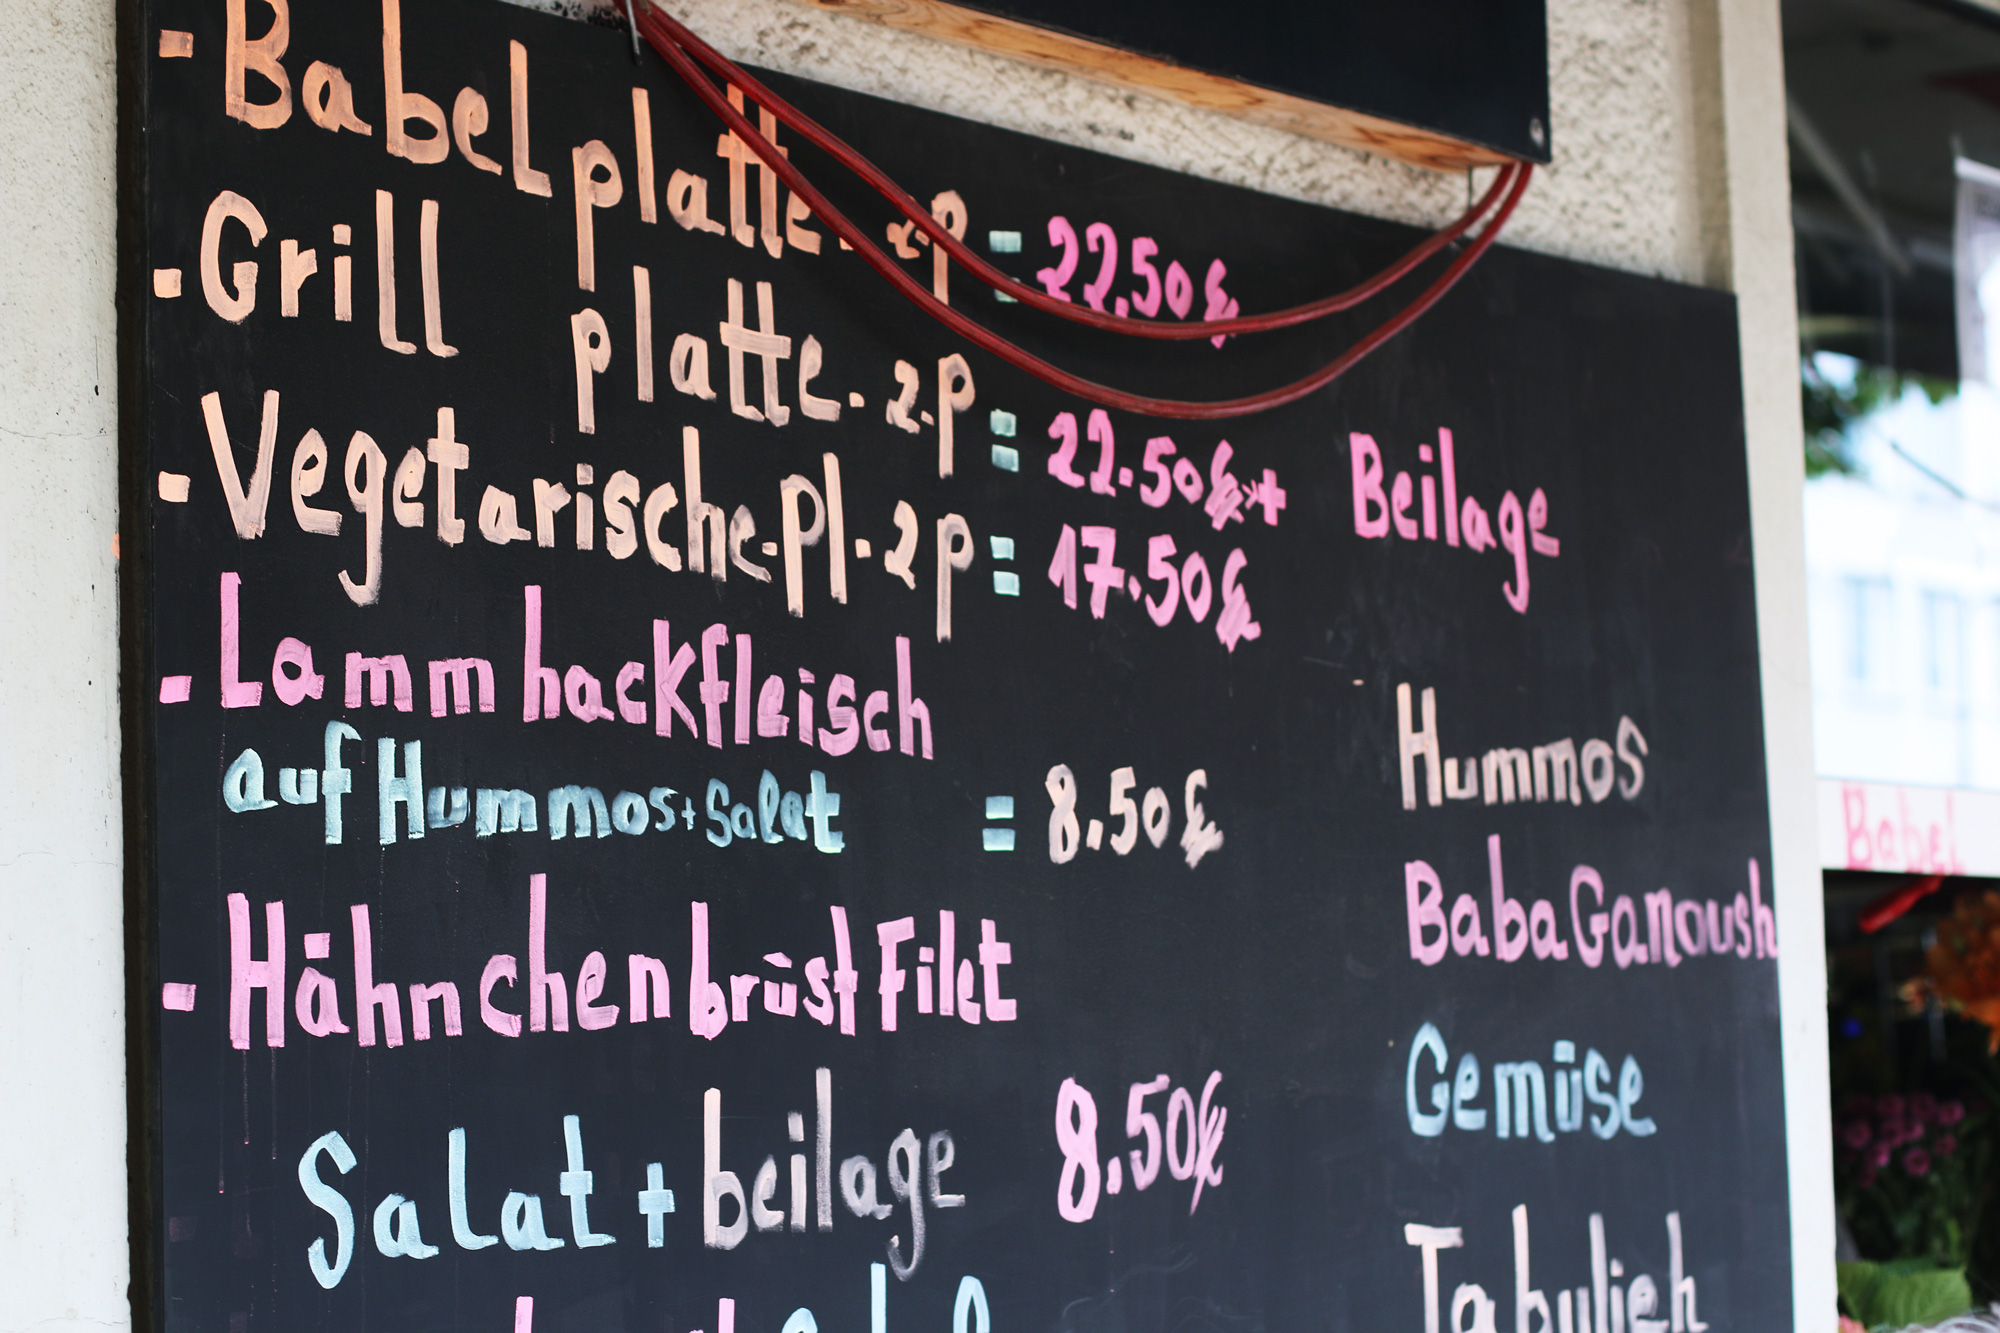 - Babel platte. 2.P = 22.50€
- Grill platte. 2.P = 22.50€ + Beilage
- Vegetarische. Pl. 2P = 17.50€
- Lamm hackfleisch
auf Hummos + Salat = 8.50€
- Hähnchen brüst Filet
Salat + beilage 8.50€
Hummos
Baba Ganoush
Gemüse
Tabulieh
Babel